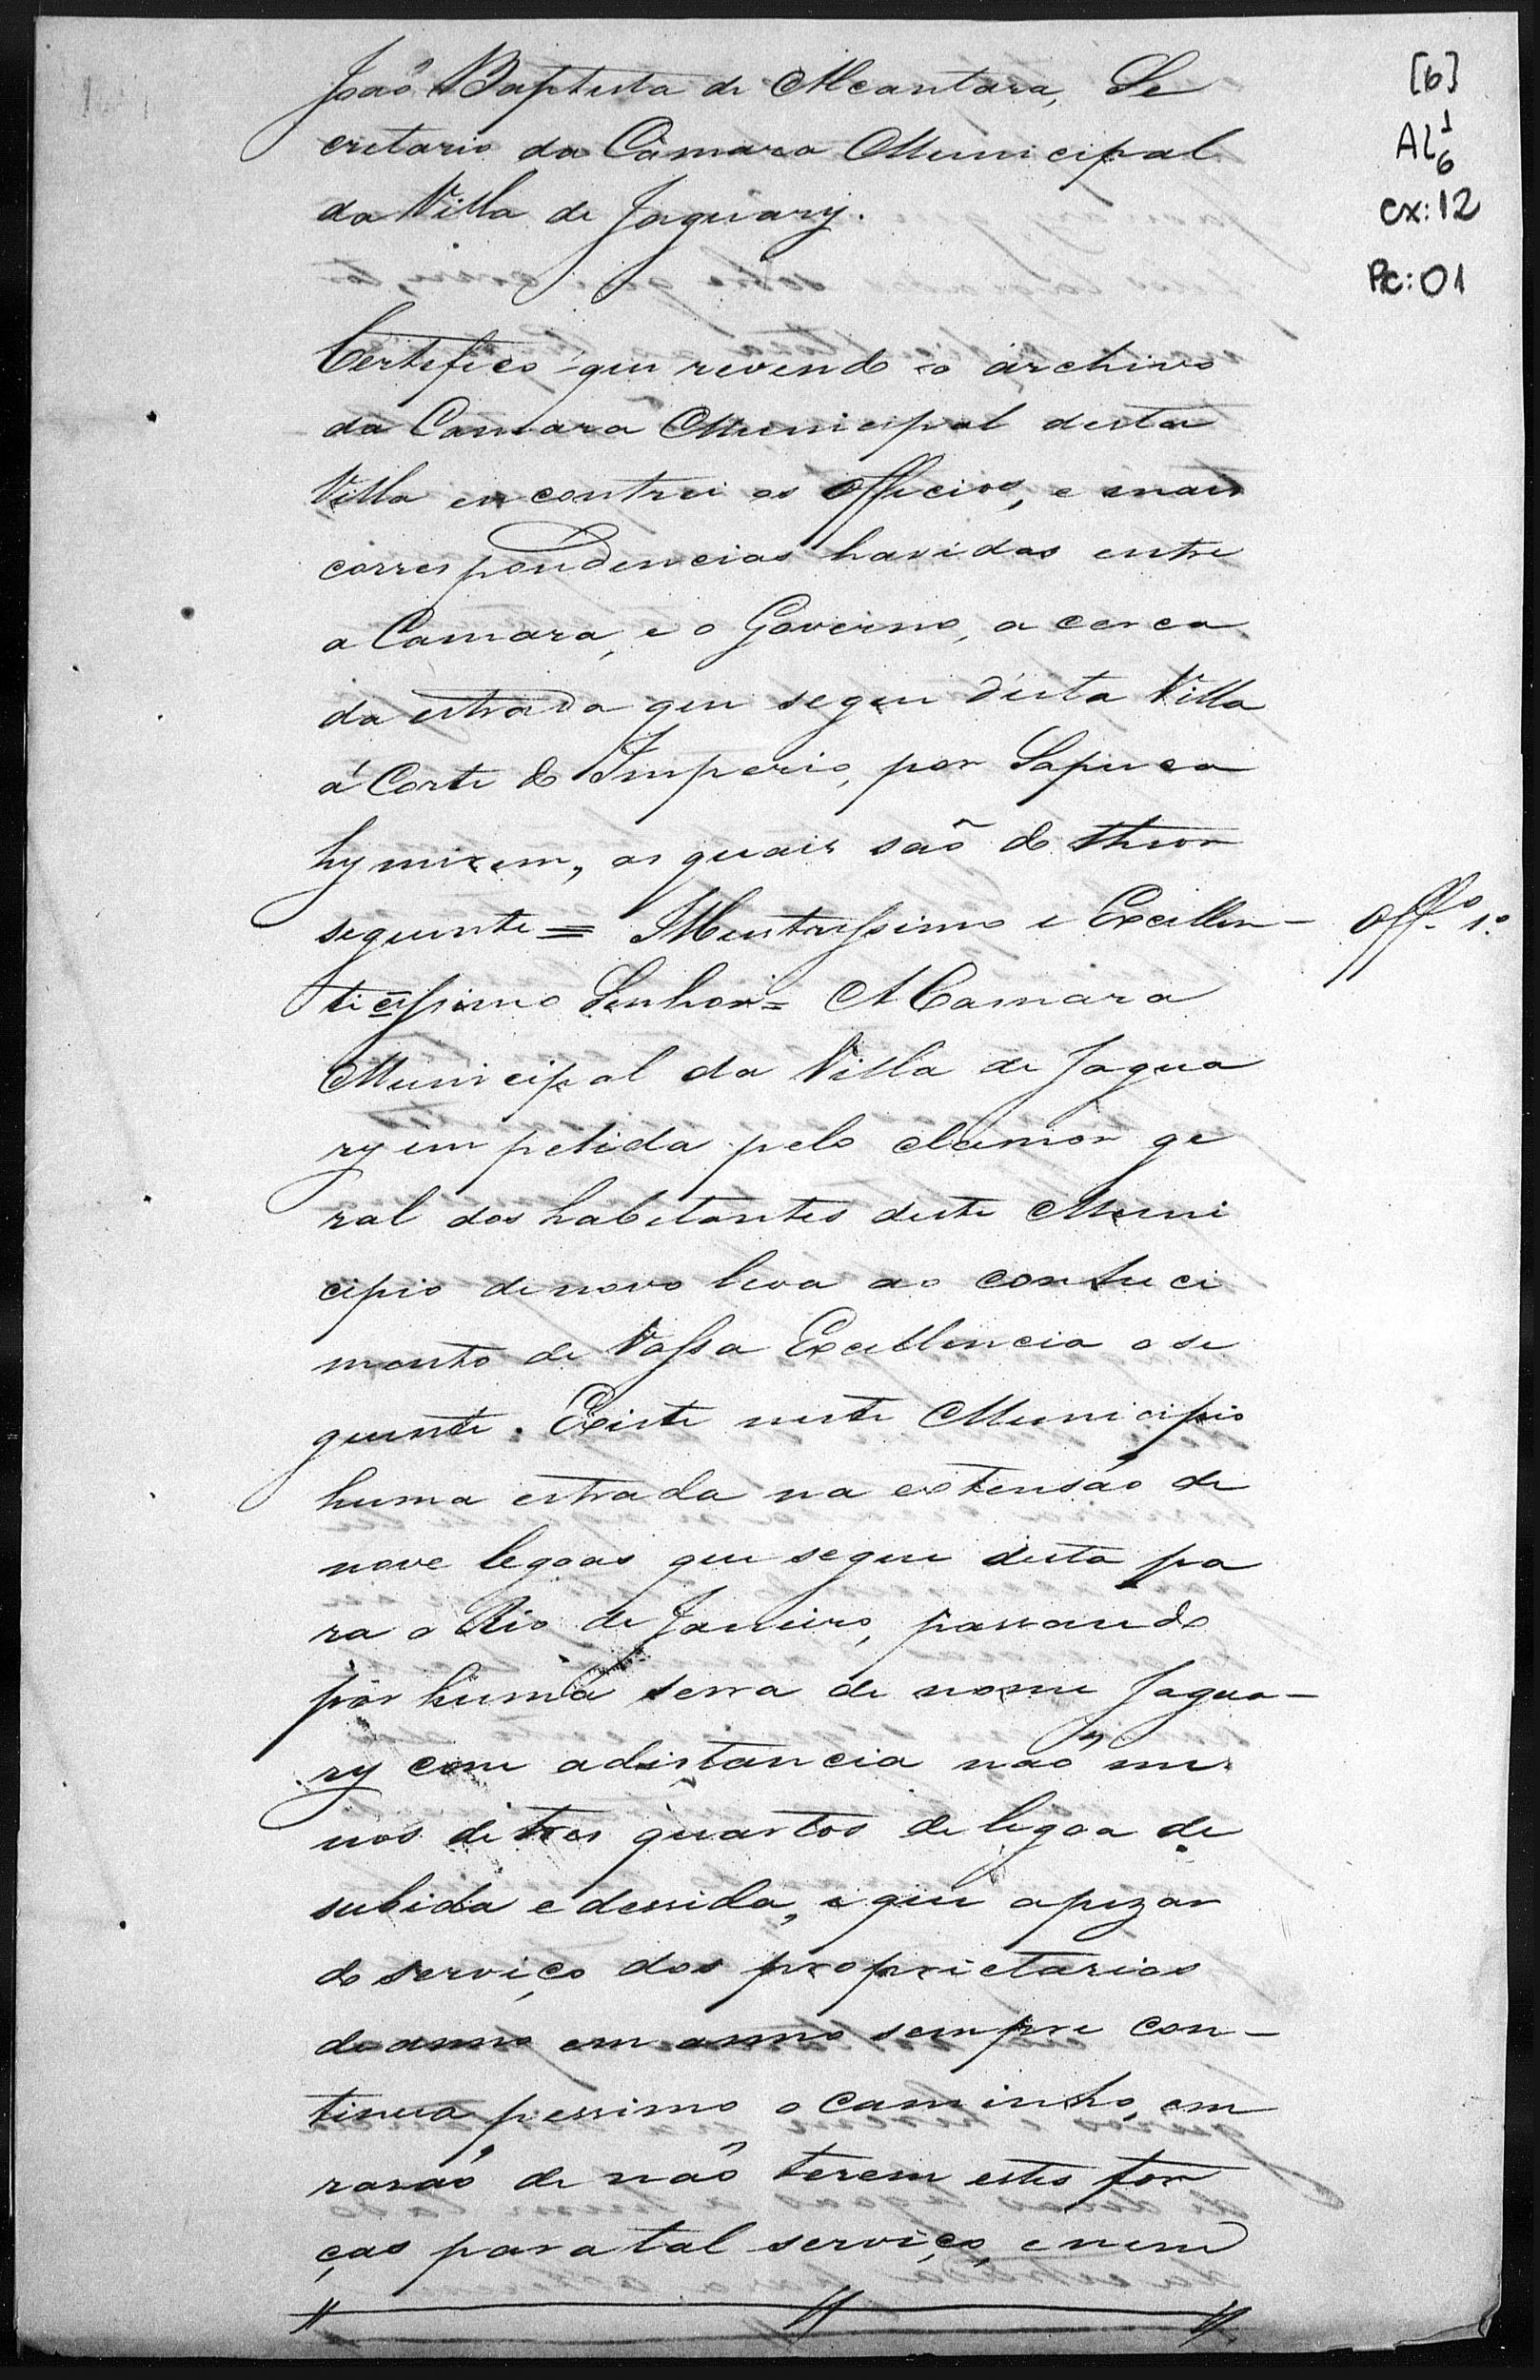 João Baptista de Alcantara, Se
cretario da Câmara Municipal
da Villa de Jaguary.
[6]
AL 1 6
cx: 12
Pc: 01
Certifico que revendo o archivo
da Camara Municipal desta
Villa encontrei os officios, e mais
correspondencias havidas entre
a Camara, e o Governo, a cerca
da estrada que segue d'esta Villa
á Corte do Imperio, por Sapuca
hy mirim, os quais são do theor
seguinte = Illustrissimo e Excellen-
Off.º 1.º
ticissimo Senhor = A Camara
Municipal da Villa de Jagua
ry impelida pelo clamor ge
ral dos habitantes deste Muni
cipio de novo leva ao conheci
mento de Vossa Excellencia o se
guinte. Existe neste Municipio
huma estrada na extensão de
nove legoas que segue desta pa
ra o Rio de Janeiro, passando
por huma serra de nome Jagua-
ry com a distancia não me
nos de tres quartos de legoa de
subida e dessida, e que apezar
do serviço dos proprietarios
de anno em anno sempre con-
tinua pessimo o caminho, em
rasão de não terem estes for
ças para tal serviço, e nem